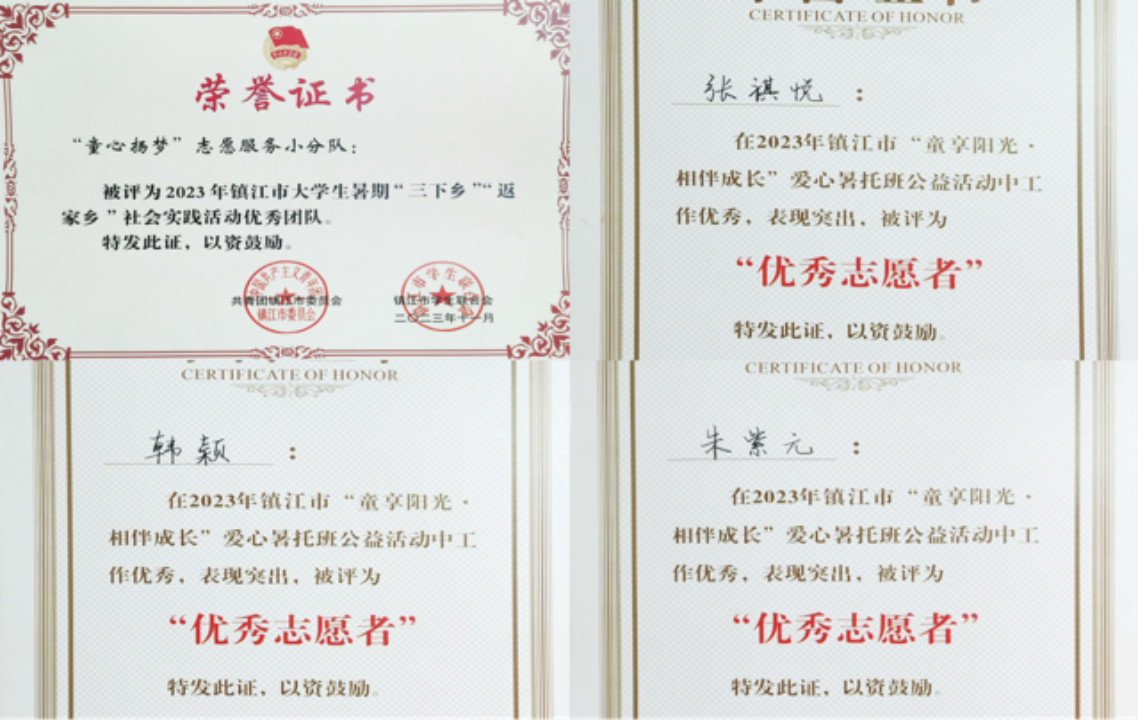 荣誉证书
“童心扬梦”志愿服务小分队：
被评为2023年镇江市大学生暑期“三下乡”“返
家乡”社会实践活动优秀团队。
特发此证，以资鼓励。
共青团镇江市委员会
镇江市学生联合会
镇江市委员会
二〇二三年十一月
CERTIFICATE OF HONOR
张祺悦：
在2023年镇江市“童享阳光·
相伴成长”爱心暑托班公益活动中工
作优秀，表现突出，被评为
“优秀志愿者”
特发此证，以资鼓励。
CERTIFICATE OF HONOR
韩颖：
在2023年镇江市“童享阳光·
相伴成长”爱心暑托班公益活动中工
作优秀，表现突出，被评为
“优秀志愿者”
特发此证，以资鼓励。
CERTIFICATE OF HONOR
朱紫元：
在2023年镇江市“童享阳光·
相伴成长”爱心暑托班公益活动中工
作优秀，表现突出，被评为
“优秀志愿者”
特发此证，以资鼓励。